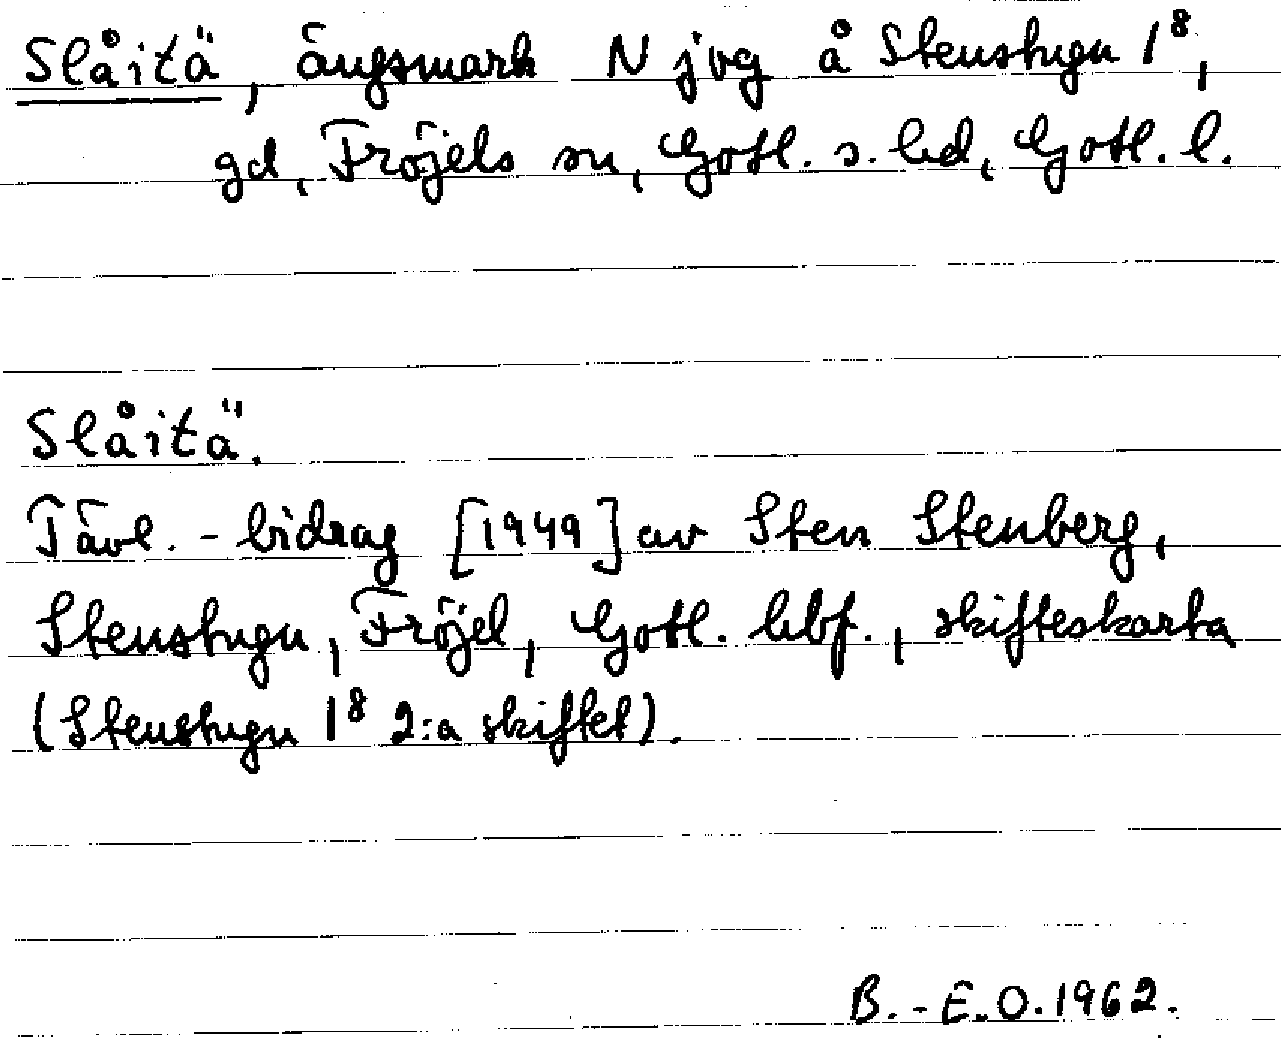 Slåitä, ängsmark N jvg å Stenstugu 1⁸,
gd, Fröjels sn, Gotl. s. hd, Gotl. l.
Slåitä.
Tävl.-bidrag [1949] av Sten Stenberg,
Stenstugu, Fröjel, Gotl. hbf., skifteskarta
(Stenstugu 1⁸ 2:a skiftet).
B.-E.O. 1962.